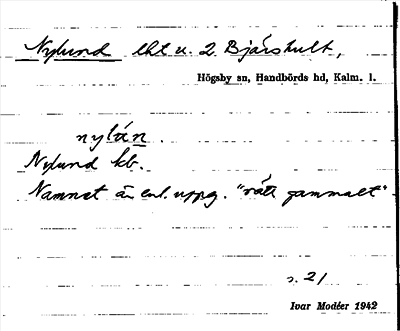 Nylund lht u. 2 Bjärshult,
Högsby sn, Handbörds hd, Kalm. l.
nylán.
Nylund kb.
Namnet är enl. uppg. "rätt gammalt"
s. 21
Ivar Modéer 1942